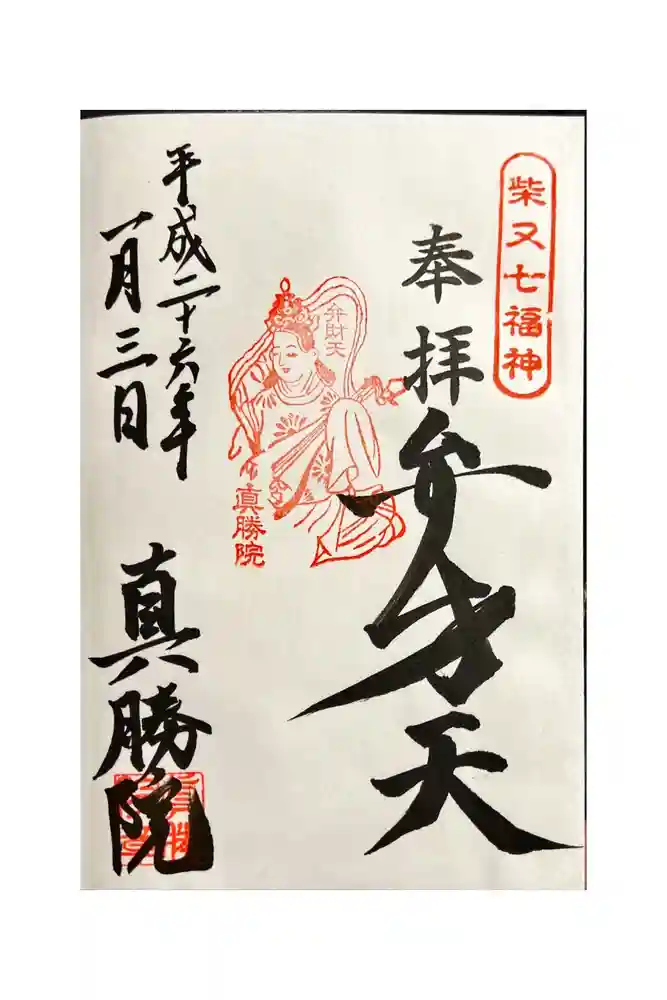 柴又七福神
奉拝
弁才天
弁財天
真勝院
平成二十六年
一月三日
真勝院